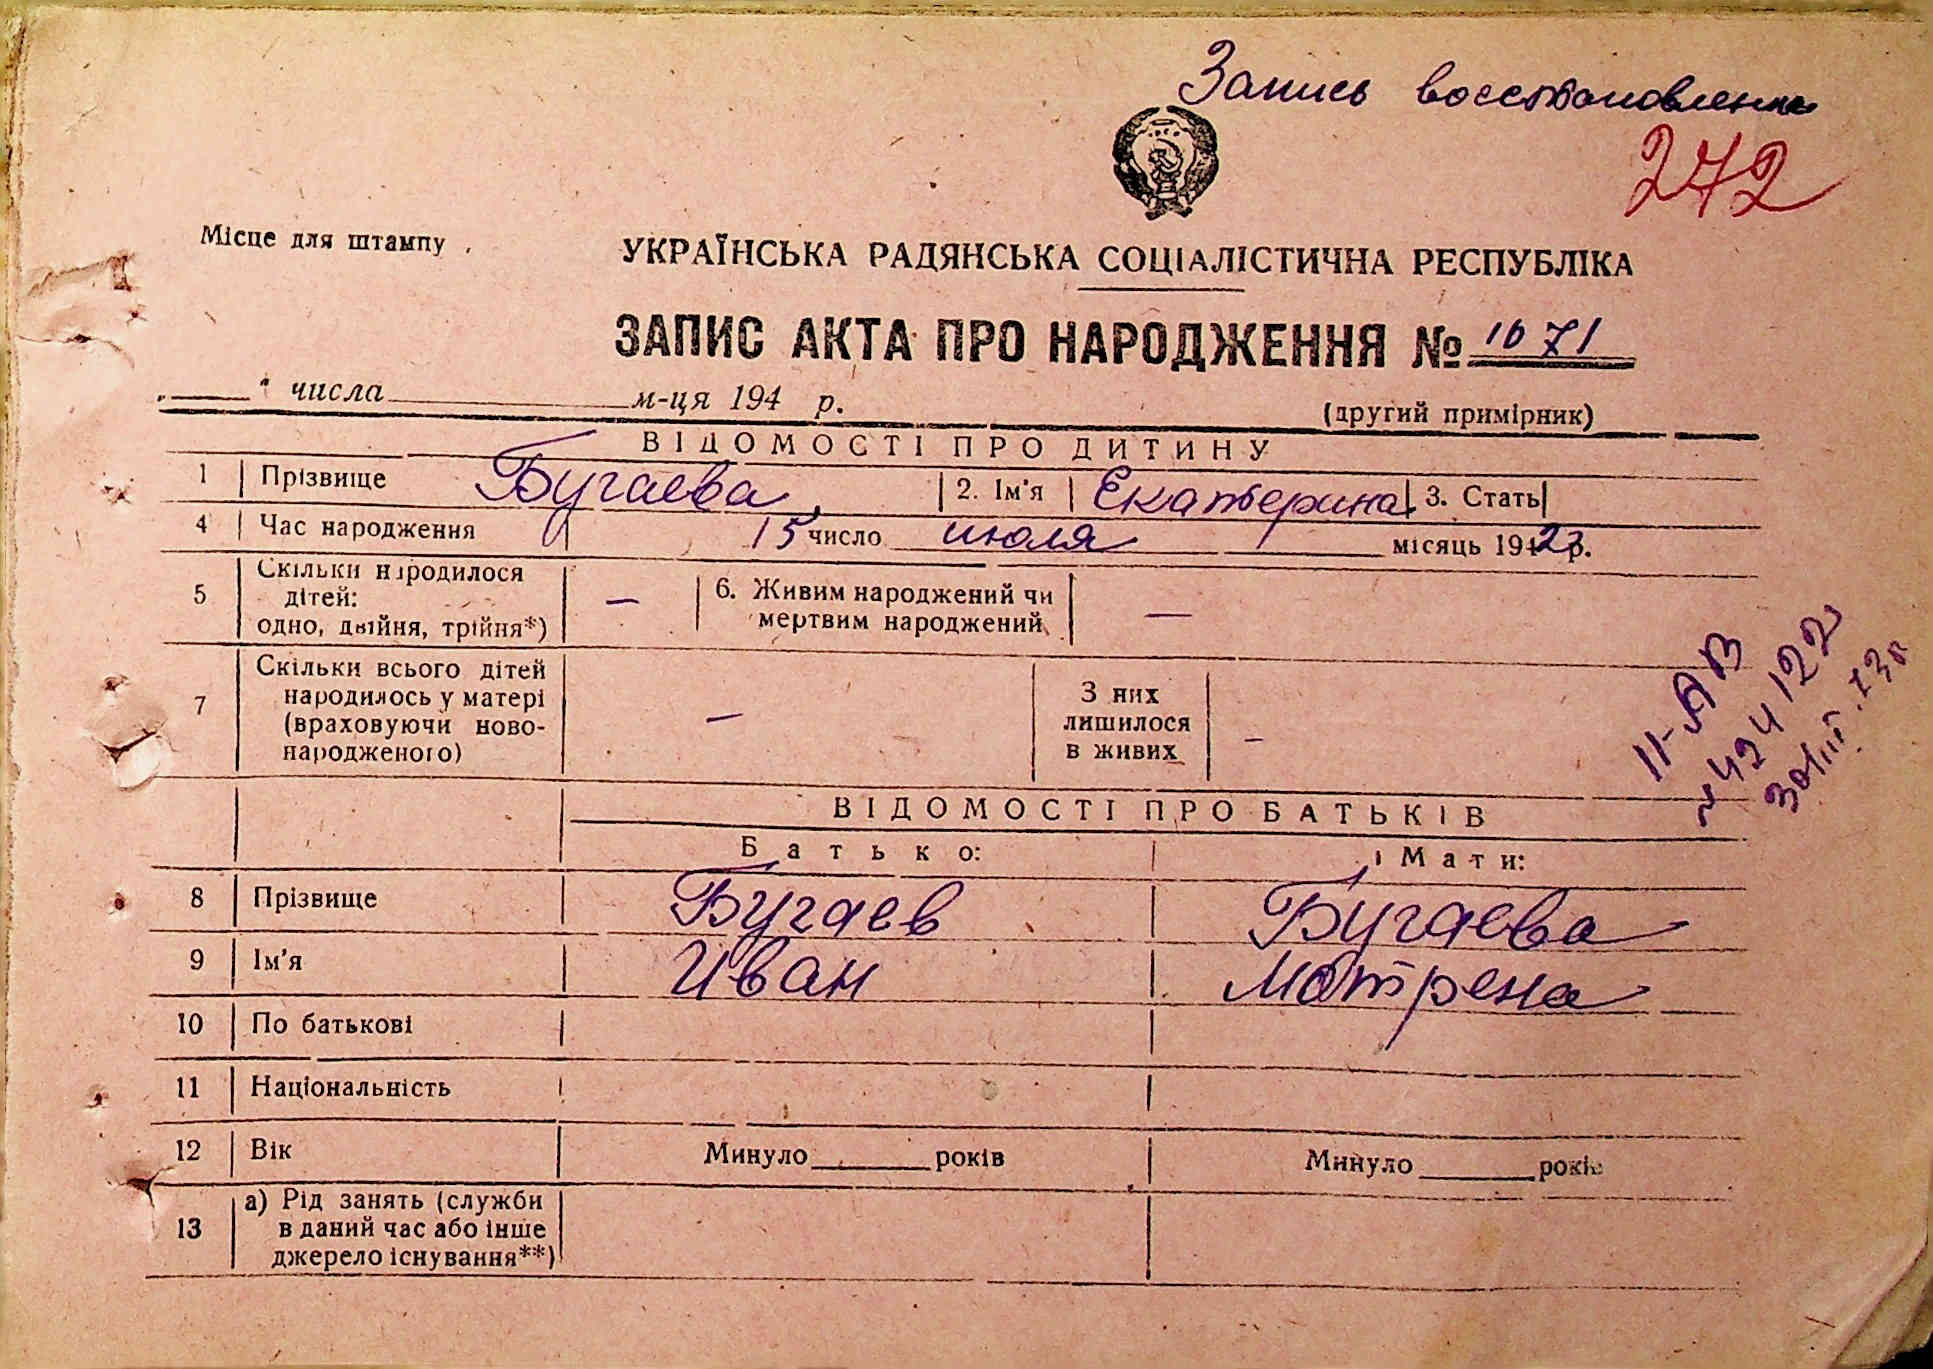 Запись восстановлена
272
Місце для штампу
УКРАЇНСЬКА РАДЯНСЬКА СОЦІАЛІСТИЧНА РЕСПУБЛІКА
ЗАПИС АКТА ПРО НАРОДЖЕННЯ № 1071
" числа м-ця 194 р.
(другий примірник)
ВІДОМОСТІ ПРО ДИТИНУ
1 Прізвище Бугаева 2. Ім'я Екатерина 3. Стать
4 Час народження 15 число июля місяць 1923 р.
5 Скільки народилося дітей: одно, двійня, трійня*) — 6. Живим народжений чи мертвим народжений —
7 Скільки всього дітей народилось у матері (враховуючи новонародженого) — З них лишилося в живих —
II-АВ
№ 424122
ВІДОМОСТІ ПРО БАТЬКІВ
Батько: Мати:
8 Прізвище Бугаев Бугаева
9 Ім'я Иван Мотрена
10 По батькові
11 Національність
12 Вік Минуло років Минуло років
13 а) Рід занять (служби в даний час або інше джерело існування**)